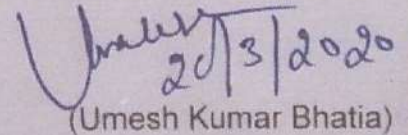 Umesh
20/3/2020
(Umesh Kumar Bhatia)